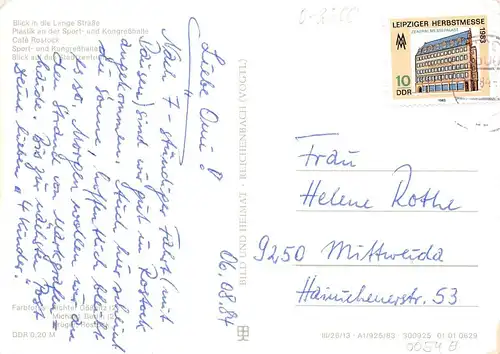 Blick in die Lange Straße
Plastik an der Sport- und Kongreßhalle
Café Rostock
Sport- und Kongreßhalle
Blick auf
Liebe Omi!
Nach 7-stündiger Fahrt (mit
Pausen) sind wir gut in Rostock
angekommen. Auch hier scheint
die Sonne, hoffentlich bleibt
es so. Morgen wollen wir an
den Strand von Markgrafen-
heide. Bis zur nächsten Post
4 Kinder.
06.08.84
BILD UND HEIMAT · REICHENBACH (VOGTL)
DDR 0,20 M
LEIPZIGER HERBSTMESSE
1983
ZENTRALMESSEPALAST
10
DDR
1983
Frau
Helene Rothe
9250 Mittweida
Hainichenerstr. 53
III/26/13 · A1/925/83 300925 01 01 0629